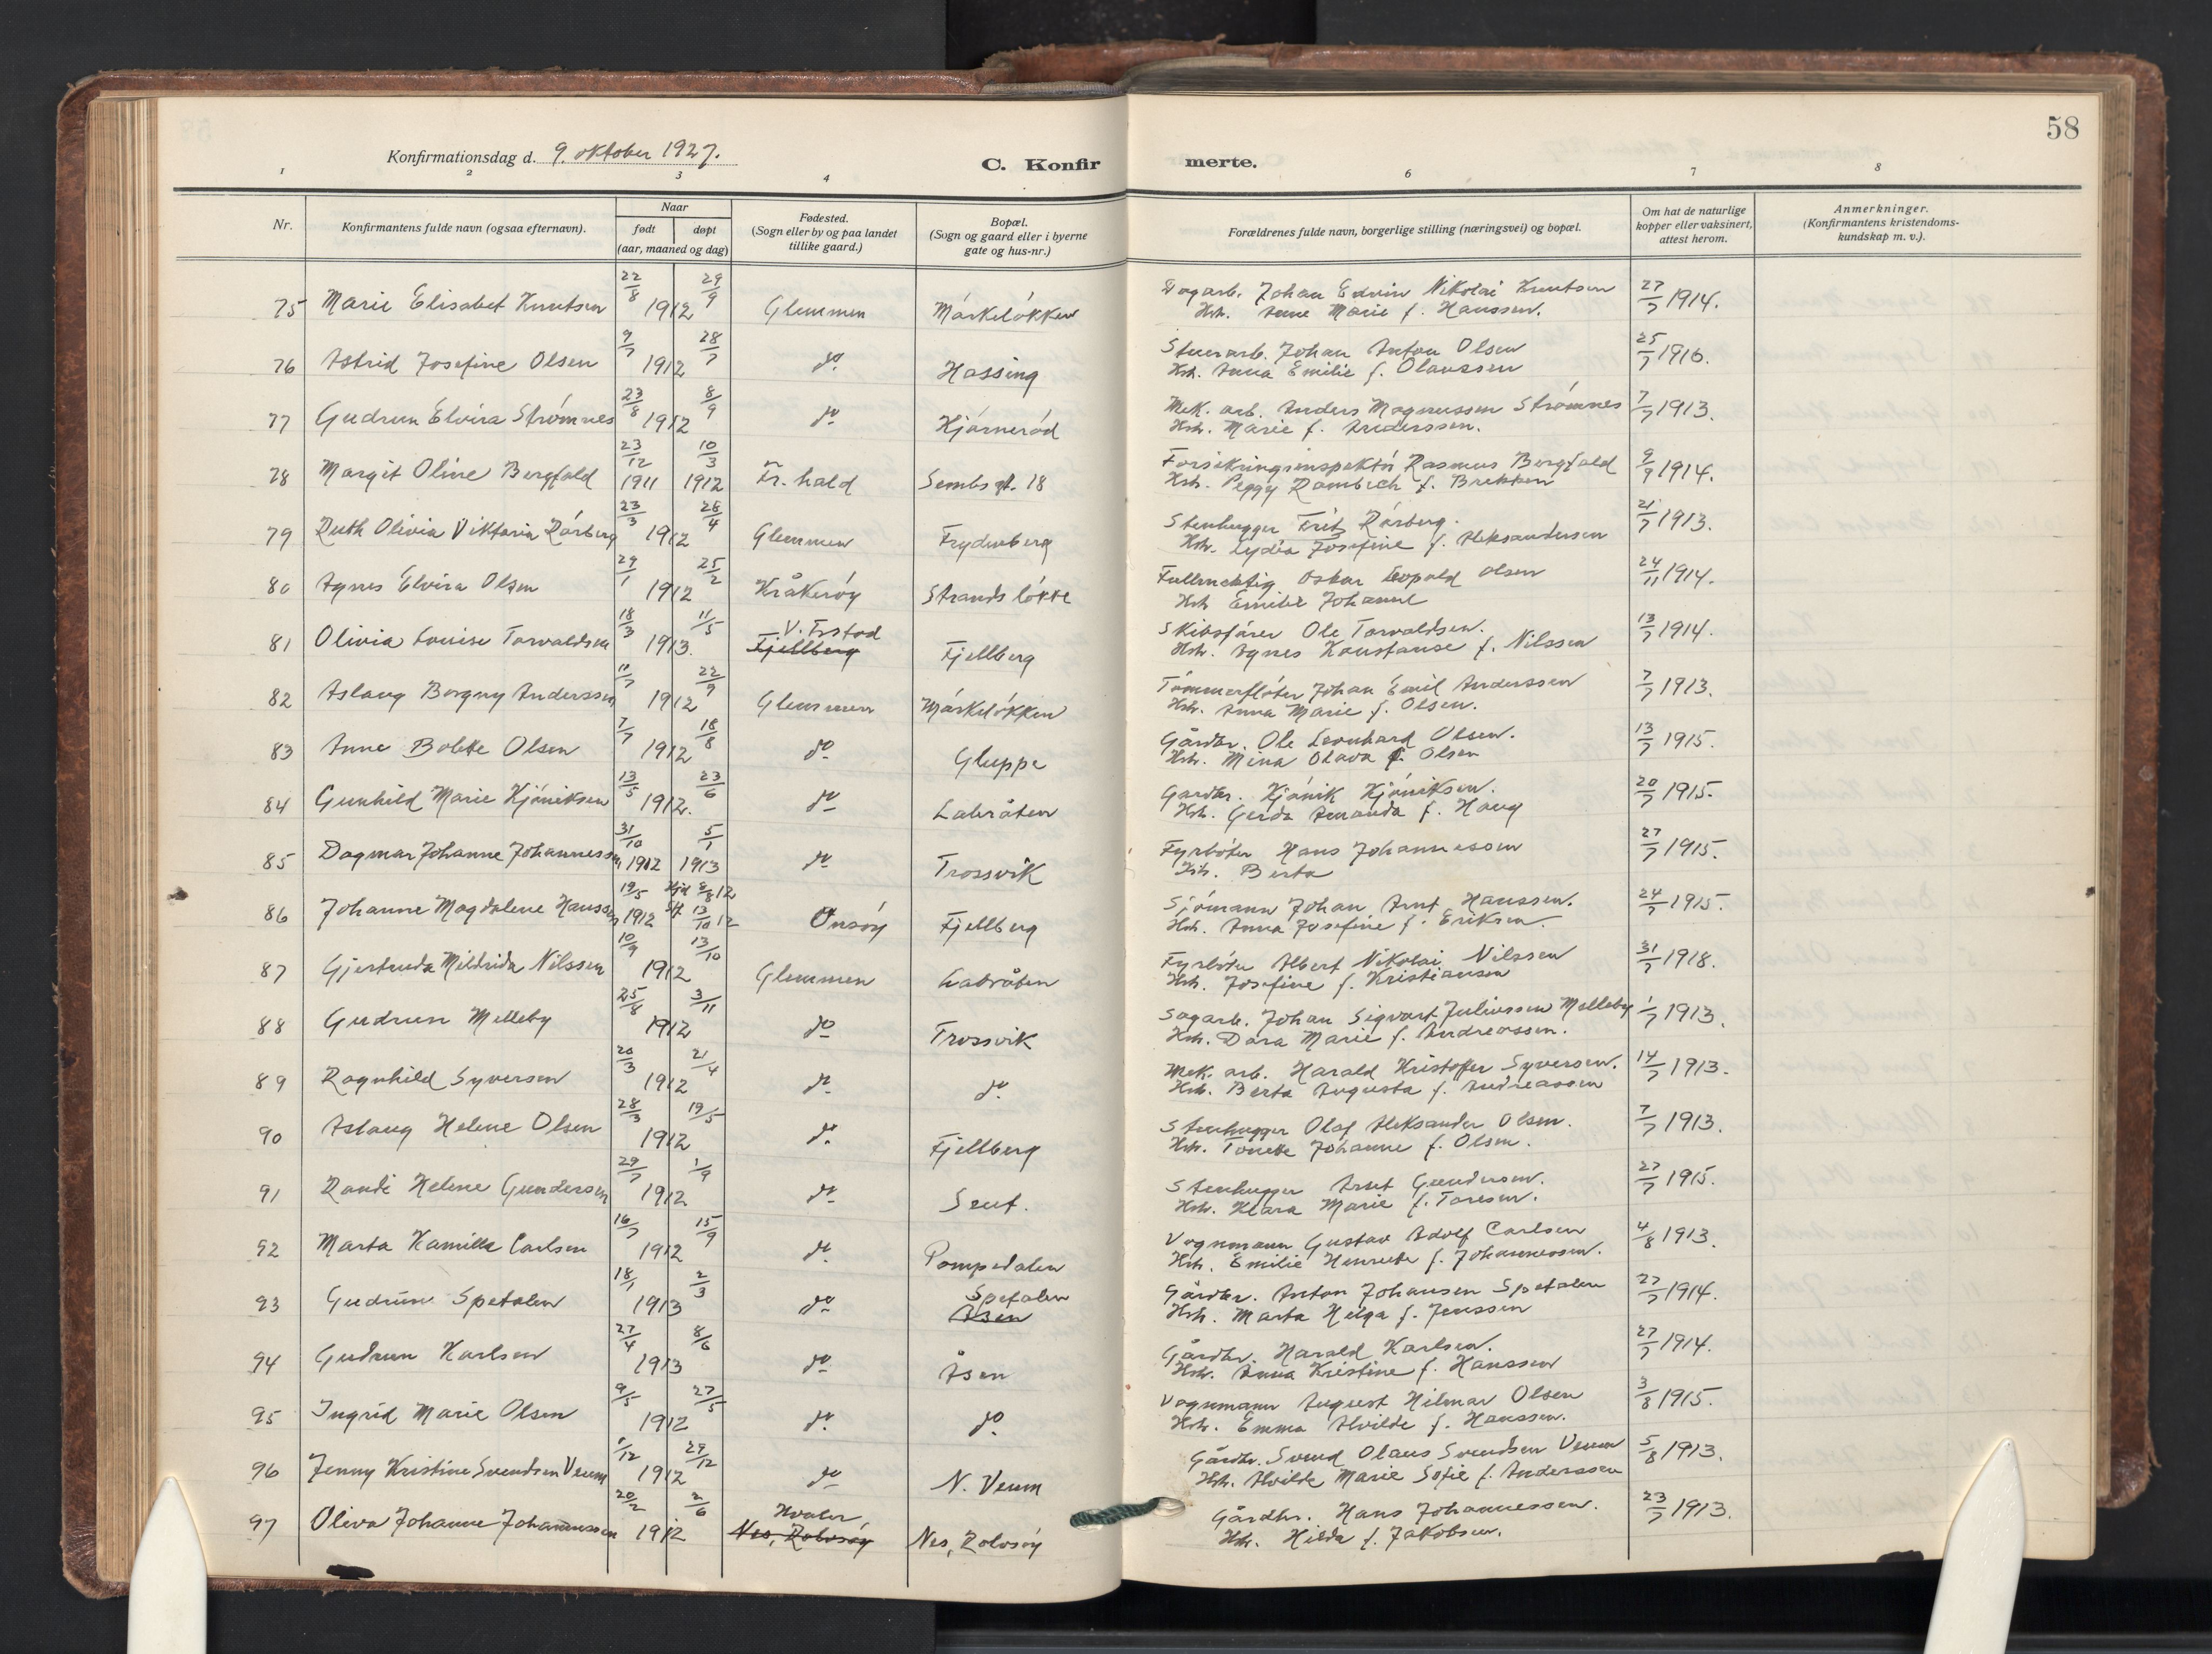 58
Konfirmationsdag d. 9. oktober 1927.
C. Konfirmerte.
1 2 3 4 6 7 8
Nr.
Konfirmantens fulde navn (ogsaa efternavn).
Naar
født døpt
(aar, maaned og dag)
Fødested.
(Sogn eller by og paa landet
tillike gaard.)
Bopæl.
(Sogn og gaard eller i byerne
gate og hus-nr.)
Forældrenes fulde navn, borgerlige stilling (næringsvei) og bopæl.
Om hat de naturlige
kopper eller vaksinert,
attest herom.
Anmerkninger.
(Konfirmantens kristendoms-
kundskap m. v.).
75 Marie Elisabet Knutsen 22/8 29/9 1912 Glemmen Mørkeløkken Dagarb. Johan Edvin Nikolai Knutsen 27/7 1914.
Hst. Anne Marie f. Hanssen.
76 Astrid Josefine Olsen 9/7 28/7 1912 do Hassing Stenarb. Johan Anton Olsen 25/7 1916.
Hst. Anna Emilie f. Olaussen
77 Gudrun Elvira Strømnes 23/8 8/9 1912 do Kjørnerød Mek. arb. Anders Magnussen Strømnes 7/7 1913.
Hst. Marie f. Anderssen.
78 Margit Oline Bergfald 23/12 1911 10/3 1912 Fr. hald Sembs gt. 18 Forsikringsinspektør Rasmus Bergfald 9/9 1914.
Hst. Peggy Rambech f. Brekken
79 Ruth Olivia Viktoria Rørberg 23/3 28/4 1912 Glemmen Frydenberg Stenhugger Frits Rørberg. 21/7 1913.
Hst. Lydia Josefine f. Aleksandersen
80 Agnes Elvira Olsen 29/1 25/2 1912 Kråkerøy Strandsløkke Fullmektig Oskar Leopold Olsen 24/11 1914.
Hst Emilie Johanne
81 Olivia Louise Torvaldsen 18/3 11/5 1913. V. Frstad Fjellberg Fjellberg Skibsfører Ole Torvaldsen. 13/7 1914.
Hst. Agnes Konstanse f. Nilssen
82 Aslaug Borgny Anderssen 10/7 22/9 1912 Glemmen Mørkeløkken Tømmerfløter Johan Emil Anderssen 7/7 1913.
Hst. Anna Marie f. Olsen.
83 Anne Bolette Olsen 7/7 18/8 1912 do Gluppe Gårdbr. Ole Leonhard Olsen. 13/7 1915.
Hst. Mina Olava f. Olsen
84 Gunhild Marie Kjøniksen 13/5 23/6 1912. do Labråten Gardbr. Kjønik Kjøniksen. 20/7 1915.
Hst. Gerda Amanda f. Haug
85 Dagmar Johanne Johannessen 31/10 1912 5/1 1913 do Trossvik Fyrbøter Hans Johannessen 27/7 1915.
Hst. Berta
86 Johanne Magdalene Hanssen 19/5 1912 Hjd 8/8 12 St. 13/10 12 Onsøy Fjellberg Sjømann Johan Arnt Hanssen. 24/7 1915.
Hst. Anna Josefine f. Eriksen.
87 Gjertruda Mildrida Nilssen 10/9 13/10 1912 Glemmen Labråten Fyrbøter Albert Nikolai Nilssen 31/7 1918.
Hst. Josefine f. Kristiansen
88 Gudrun Melleby 25/8 3/11 1912 do Trossvik Sagarb. Johan Sigvart Juliussen Melleby 1/7 1913.
Hst. Dora Marie f. Andreassen.
89 Ragnhild Syversen 20/3 21/4 1912 do do Mek. arb. Harald Kristoffer Syversen. 14/7 1913.
Hst. Berta Augusta f. Andreassen
90 Aslaug Helene Olsen 28/3 19/5 1912 do Fjellberg Stenhugger Olaf Aleksander Olsen. 7/7 1913.
Hst. Tonette Johanne f. Olsen.
91 Randi Helene Gundersen 29/7 1/9 1912 do Seut. Stenhugger Arnt Gundersen. 27/7 1915.
Hst. Klara Marie f. Toresen.
92 Marta Kamilla Carlsen 16/7 15/9 1912 do Pompedalen Vognmann Gustav Adolf Carlsen 4/8 1913.
Hst. Emilie Henriette f. Johannessen.
93 Gudrun Spetalen 18/1 2/3 1913 do Spetalen Åsen Gårdbr. Anton Johansen Spetalen 27/7 1914.
Hst. Marta Helga f. Jenssen
94 Gudrun Karlsen 27/4 8/6 1913 do Åsen Gårdbr. Harald Karlsen. 27/7 1914.
Hst. Anna Kristine f. Hanssen
95 Ingrid Marie Olsen 9/5 27/5 1912 do do Vognmann August Hilmar Olsen 3/8 1915.
Hst. Emma Alvilde f. Hanssen.
96 Jenny Kristine Svendsen Veum 1/12 29/12 1912 do N. Veum Gårdbr. Svend Olaus Svendsen Veum 5/8 1913.
Hst. Alvilde Marie Sofie f. Anderssen
97 Oliva Johanne Johannessen 20/2 2/6 1912 Hvaler Nes, Rolvsøy Nes, Rolvsøy Gårdbr. Hans Johannessen. 23/7 1913.
Hst. Hilda f. Jakobsen.